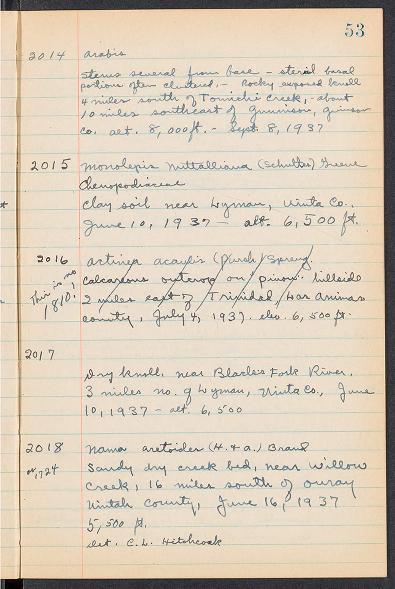 53
2014 Arabis
Stems several from base - sterial basal
portions often clustered. - Rocky exposed knoll
4 miles south of Tomichi Creek, - about
10 miles southeast of Gunnison, Gunnison
Co. alt. 8,000 ft. - Sept. 8, 1937
2015 Monolepis Nuttalliana (Schultes) Greene
Chenopodiaceae
Clay soil near Lyman, Uinta Co.,
June 10, 1937 - alt. 6,500 ft.
2016 Actinea acaulis (Pursh) Spreng.
This is no
1810!
Calcareous outcrop on pinon hillside
2 miles east of Trinidad, Las Animas
County, July 4, 1937. elev. 6,500 ft.
2017
Dry knoll, near Blacks Fork River,
3 miles no. of Lyman, Uinta Co., June
10, 1937 - alt. 6,500
2018 Nama aretioides (H. & A.) Brand
or 1724
Sandy dry creek bed, near Willow
Creek, 16 miles south of Ouray
Uintah County, June 16, 1937
5,500 ft.
det. C. L. Hitchcock